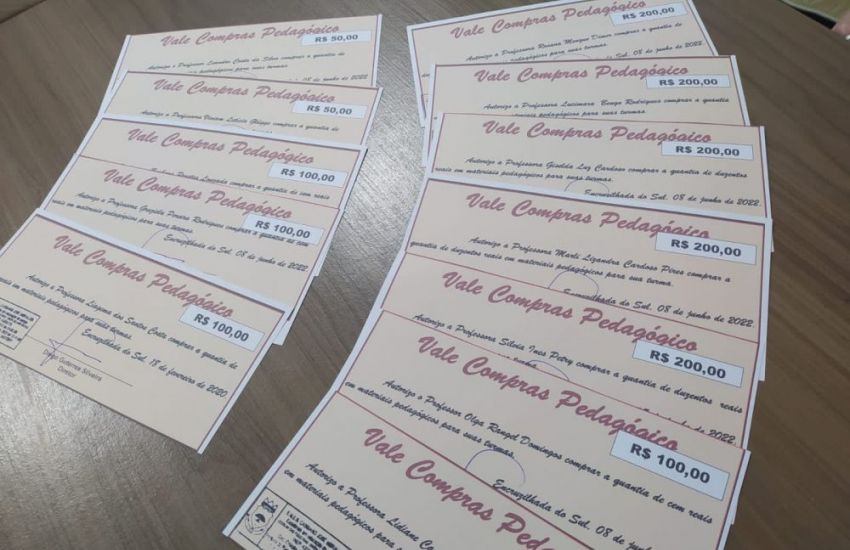 Vale Compras Pedagógico
R$ 50,00
Autorizo a Professor Leandro Costa da Silva comprar a quantia de
pedagógicos para suas turmas.
08 de junho de 2022.
Vale Compras Pedagógico
R$ 50,00
Autorizo a Professora comprar a quantia de
Vale Compras Pedagógico
R$ 100,00
comprar a quantia de cem reais
Vale Compras Pedagógico
R$ 100,00
Autorizo a Professora Pereira Rodrigues comprar a quantia de cem
reais em materiais pedagógicos para suas turmas.
Encruzilhada do Sul, 08 de junho de 2022.
Vale Compras Pedagógico
R$ 100,00
Autorizo a Professora dos Santos Costa comprar a quantia de
reais em materiais pedagógicos para suas turmas.
Encruzilhada do Sul, 18 de fevereiro de 2020.
Diego Gutierres Silveira
Diretor
Vale Compras Pedagógico
R$ 200,00
Autorizo a Professora Rosana comprar a quantia de
pedagógicos para suas turmas.
do Sul, 08 de junho de 2022.
Vale Compras Pedagógico
R$ 200,00
Autorizo a Professora Lucimara Rodrigues comprar a quantia
materiais pedagógicos para suas turmas.
Vale Compras Pedagógico
R$ 200,00
Autorizo a Professora Giselda Luz Cardoso comprar a quantia de duzentos
reais em materiais pedagógicos para suas turmas.
Encruzilhada do Sul, 08 de junho de 2022.
Vale Compras Pedagógico
R$ 200,00
Autorizo a Professora Marli Lizandra Cardoso Pires comprar a
quantia de duzentos reais em materiais pedagógicos para sua turma.
Encruzilhada do Sul, 08 de junho de 2022.
Vale Compras Pedagógico
R$ 200,00
Autorizo a Professora Silvia Ines Petry comprar a quantia de duzentos reais
turma.
de 2022.
Vale Compras Pedagógico
R$ 100,00
Autorizo o Professor Olga Rangel Domingos comprar a quantia de cem reais
em materiais pedagógicos para suas turmas.
Encruzilhada do Sul, 08 de junho
Vale Compras
Autorizo a Professora Lidiane
em materiais pedagógicos para